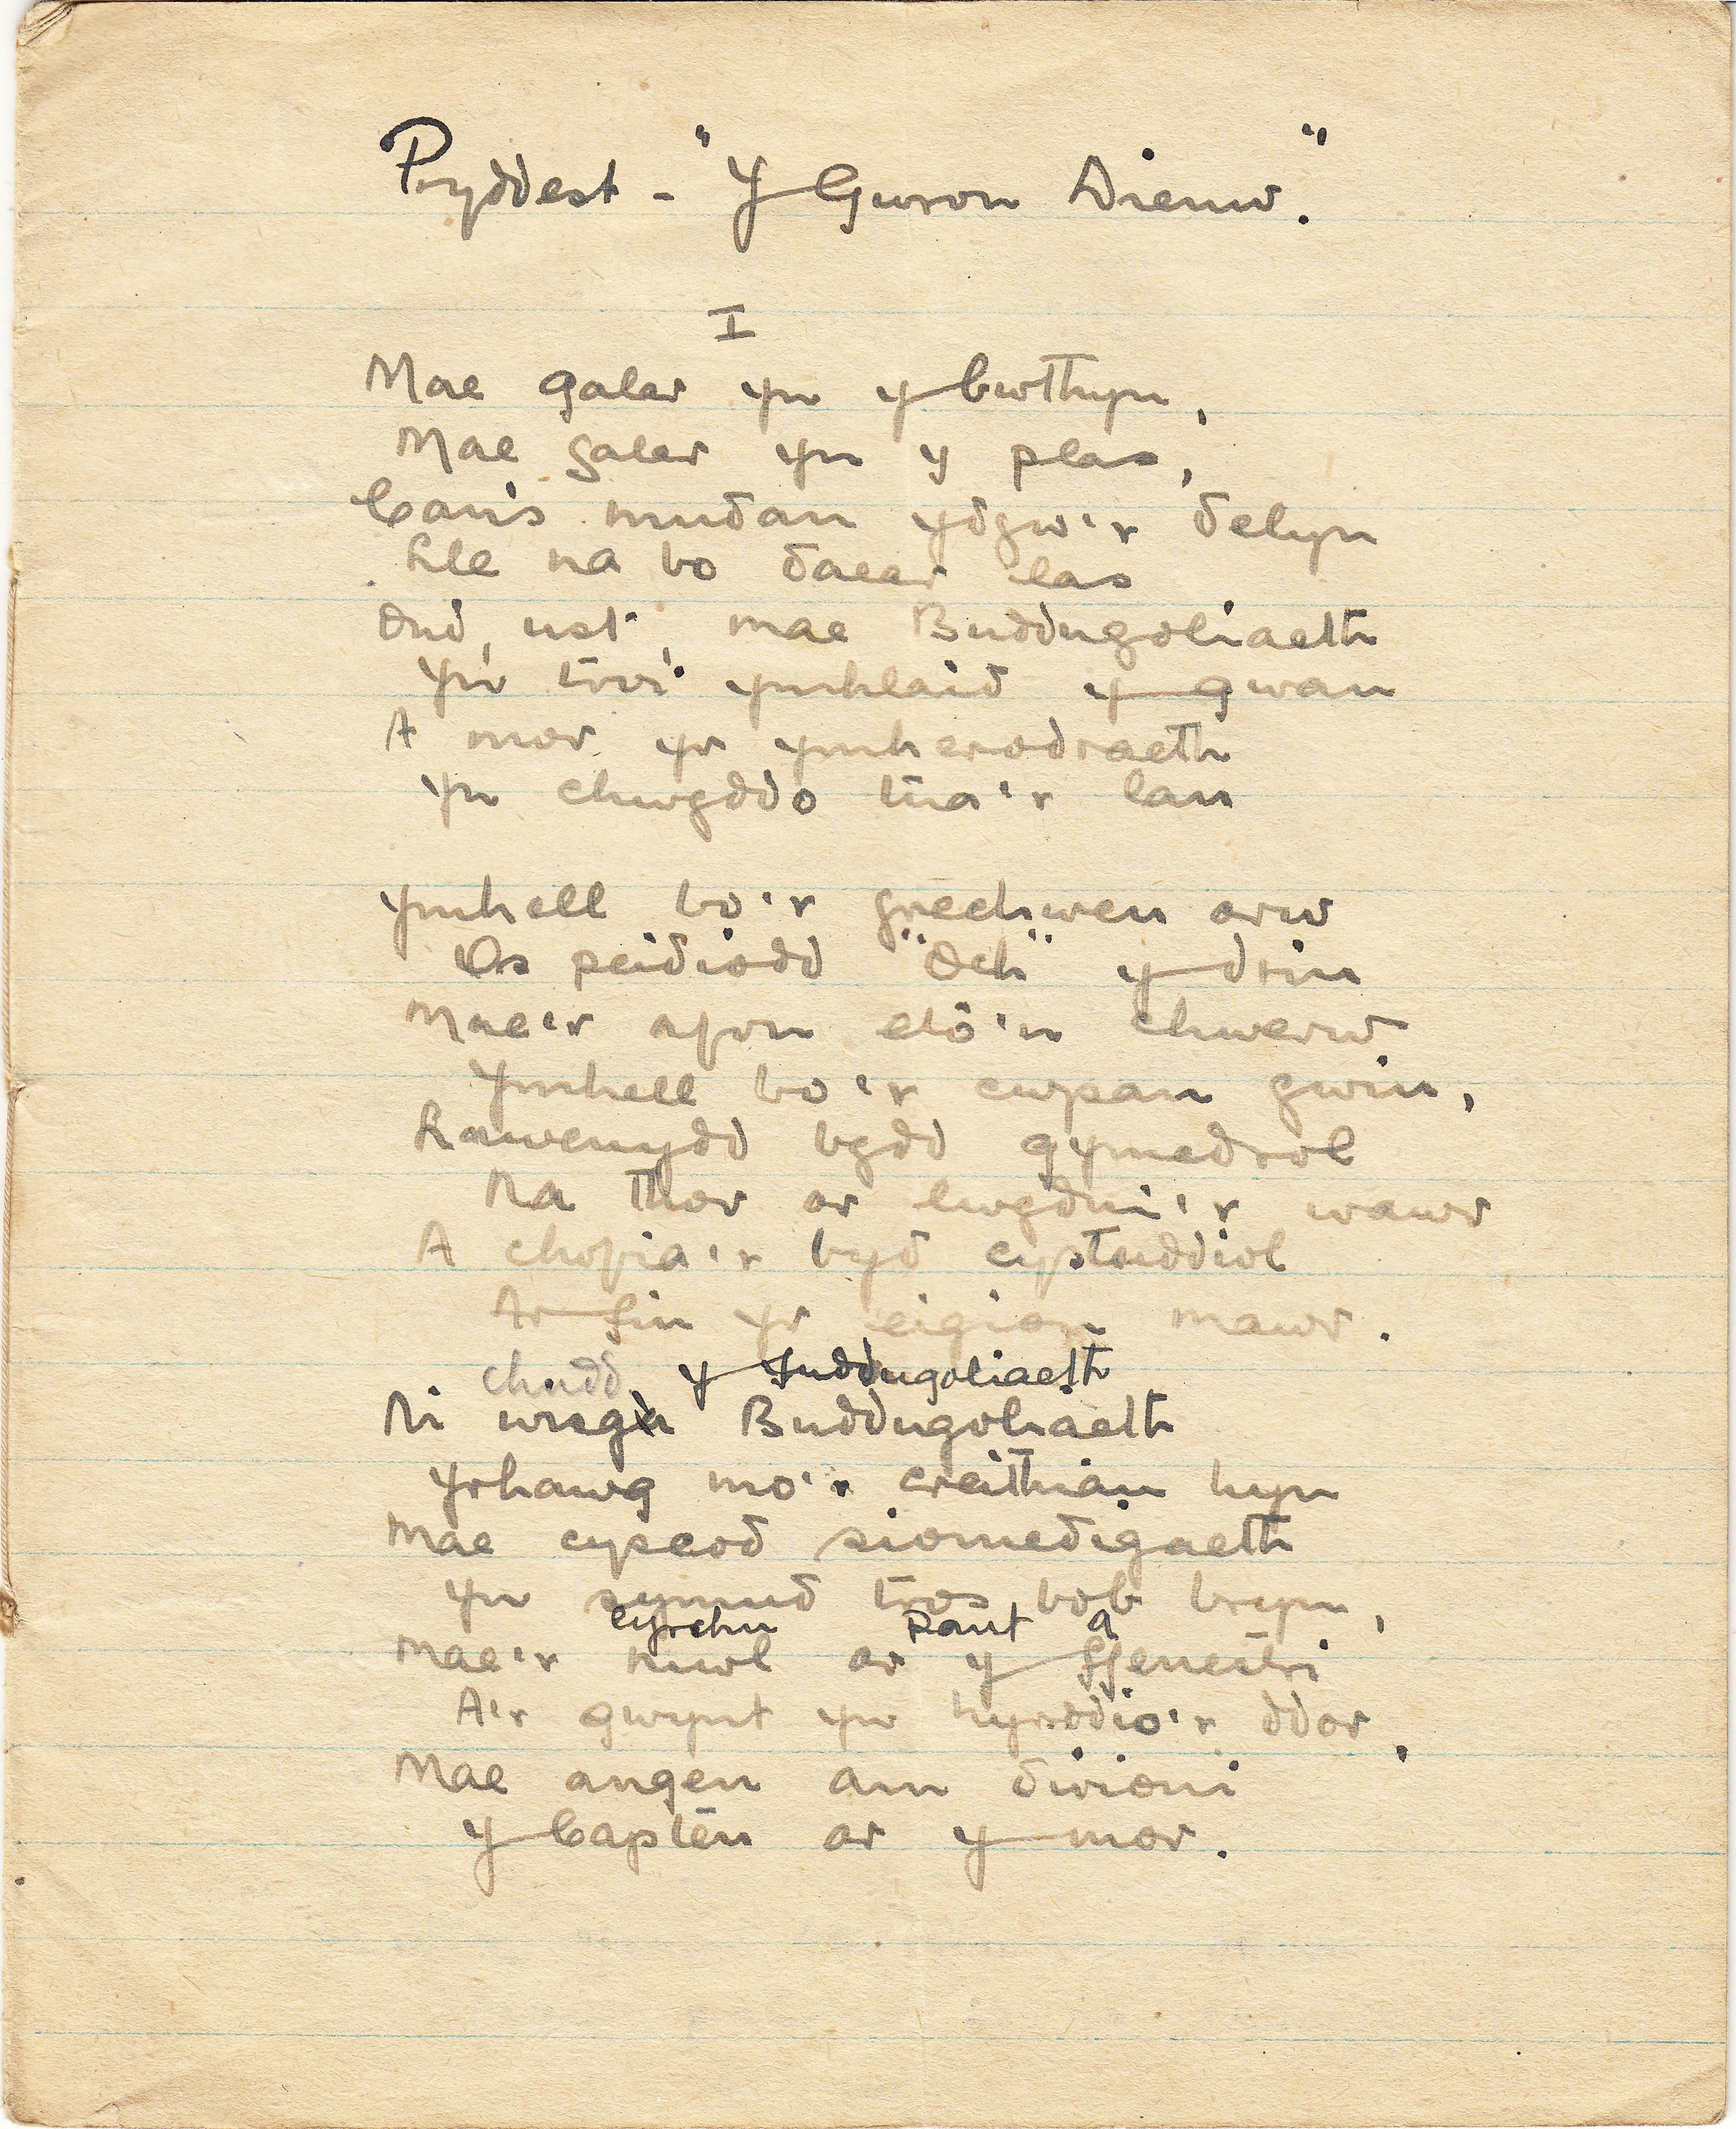 Pryddest - "Y Gwron Dienw."
I
Mae galar yn y bwthyn,
Mae galar yn y plas,
Canis mudan ydyw'r delyn
Lle na bo daear las
Ond, ust, mae Buddugoliaeth
Yn troi ymhlaid y gwan
A mor yr ymherodraeth
Yn chwyddo tua'r lan
Ymhell bo'r grechwen arw
Os peidiodd "Och" y drin
Mae'r afon eto'n chwerw
Ymhell bo'r cwpan gwin,
Llawenydd bydd gymedrol
Na thor ar lwydni'r wawr
A chofia'r byd cystuddiol
Ar fin yr eigion mawr.
chudd y fuddugoliaeth
Ni wisga Buddugoliaeth
Yrhawg mo'r creithiau hyn
Mae cysgod siomedigaeth
Yn symud tros bob bryn,
cyrchu pant a
Mae'r niwl ar y ffenestri
A'r gwynt yn hyrddio'r ddor,
Mae angen am dirioni
Y Capten ar y mor.